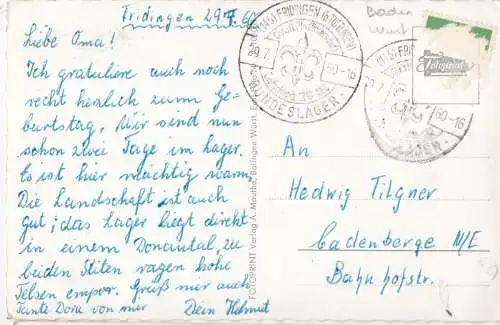 Fridingen 29.7.60
Liebe Oma!
Ich gratuliere auch noch
recht herzlich zum Ge-
burtstag. Wir send nun
schon zwei Tage im Lager.
Es ist hier mächtig warm.
Die Landschaft ist auch
gut; das Lager liegt direkt
in einem Donautal, zu
beiden Seiten ragen hohe
Felsen empor. Grüß mir auch
Tante Dora von mir Dein Helmut
FOTOPRINT Verlag A. Mauthe, Balingen-Württ.
FRIDINGEN
29.7. 60-16
BUNDESLAGER
29.7. 60-16
Baden
Württ
Fotoprint
An
Hedwig Tilgner
Cadenberge N/E
Bahnhofstr.